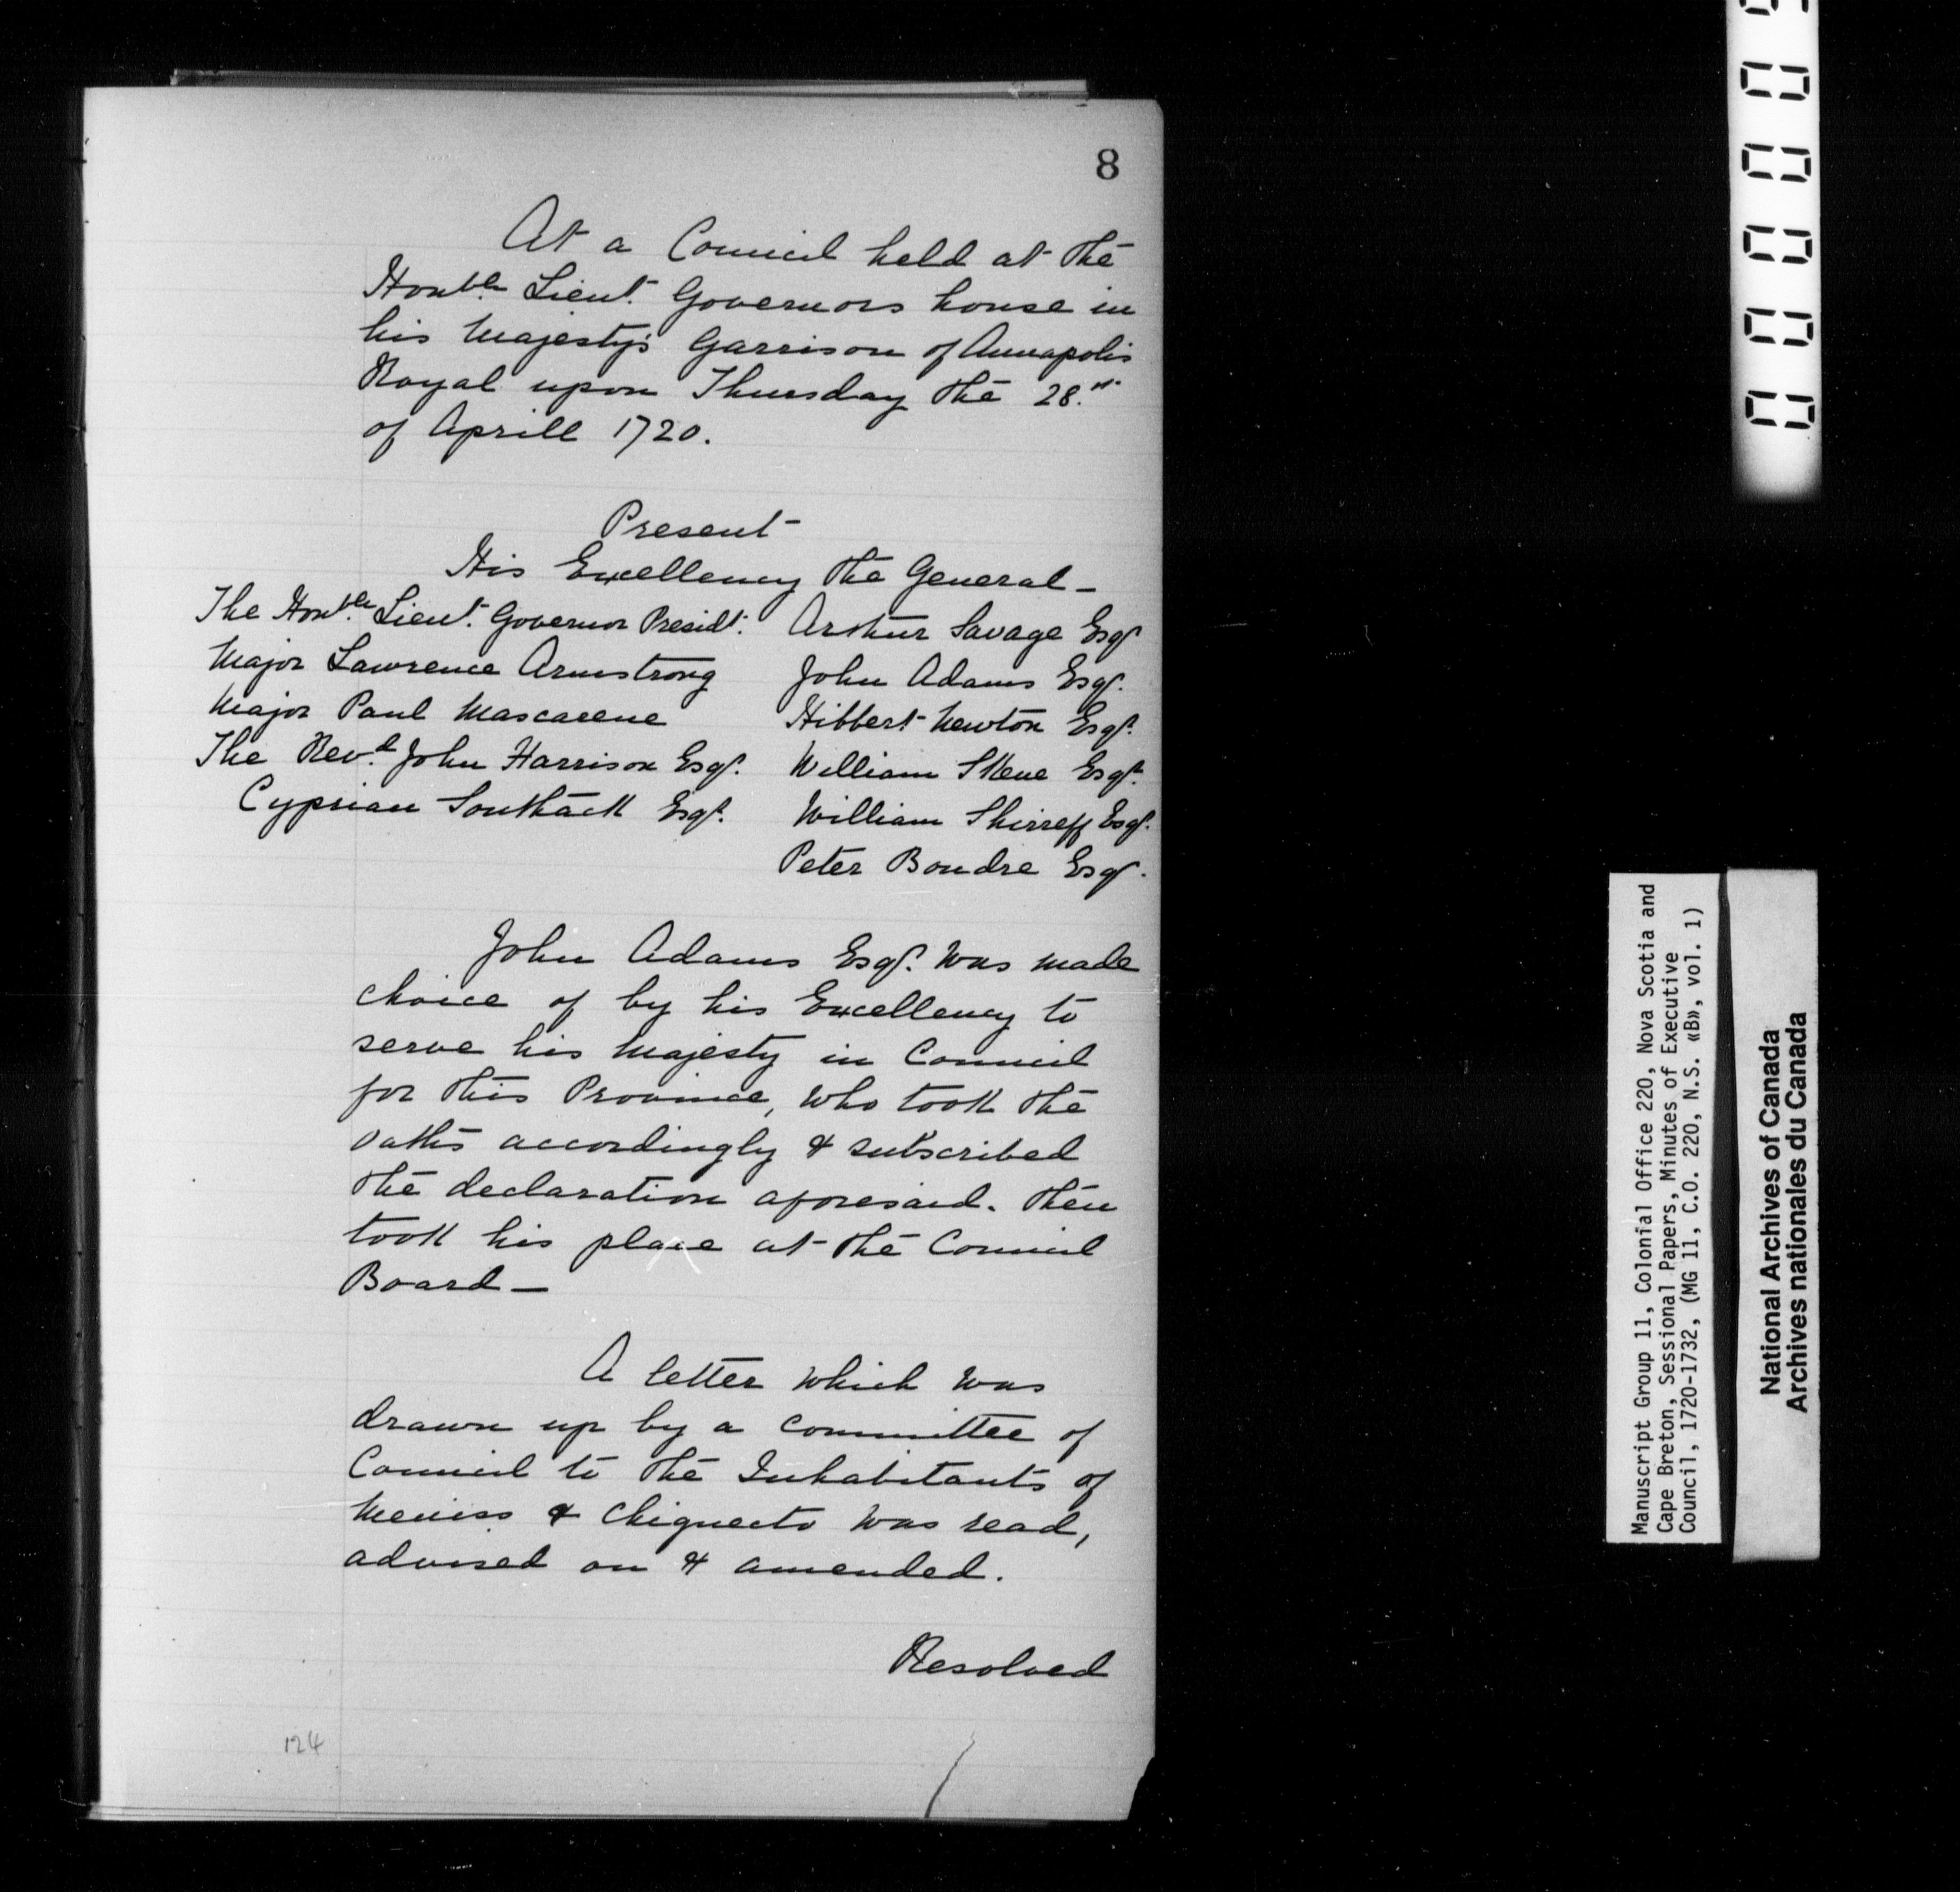 8
At a Council held at the
Honble. Lieut. Governors house in
his Majesty's Garrison of Annapolis
Royal upon Thursday the 28.th
of Aprill 1720.
Present
His Excellency the General —
The Honble. Lieut. Governor Presidt. Arthur Savage Esqr.
Major Lawrence Armstrong John Adams Esqr.
Major Paul Mascarene Hibbert Newton Esqr.
The Revd. John Harrison Esqr. William Skene Esqr.
Cyprian Southack Esqr. William Shirreff Esqr.
Peter Boudre Esqr.
John Adams Esqr. was made
choice of by his Excellency to
serve his Majesty in Council
for this Province, who took the
oaths accordingly & subscribed
the declaration aforesaid. then
took his place at the Council
Board —
A letter which was
drawn up by a committee of
Council to the Inhabitants of
Meniss & Chignecto was read,
advised on & amended.
Resolved
124
Manuscript Group 11, Colonial Office 220, Nova Scotia and
Cape Breton, Sessional Papers, Minutes of Executive
Council, 1720-1732, (MG 11, C.O. 220, N.S. «B», vol. 1)
National Archives of Canada
Archives nationales du Canada